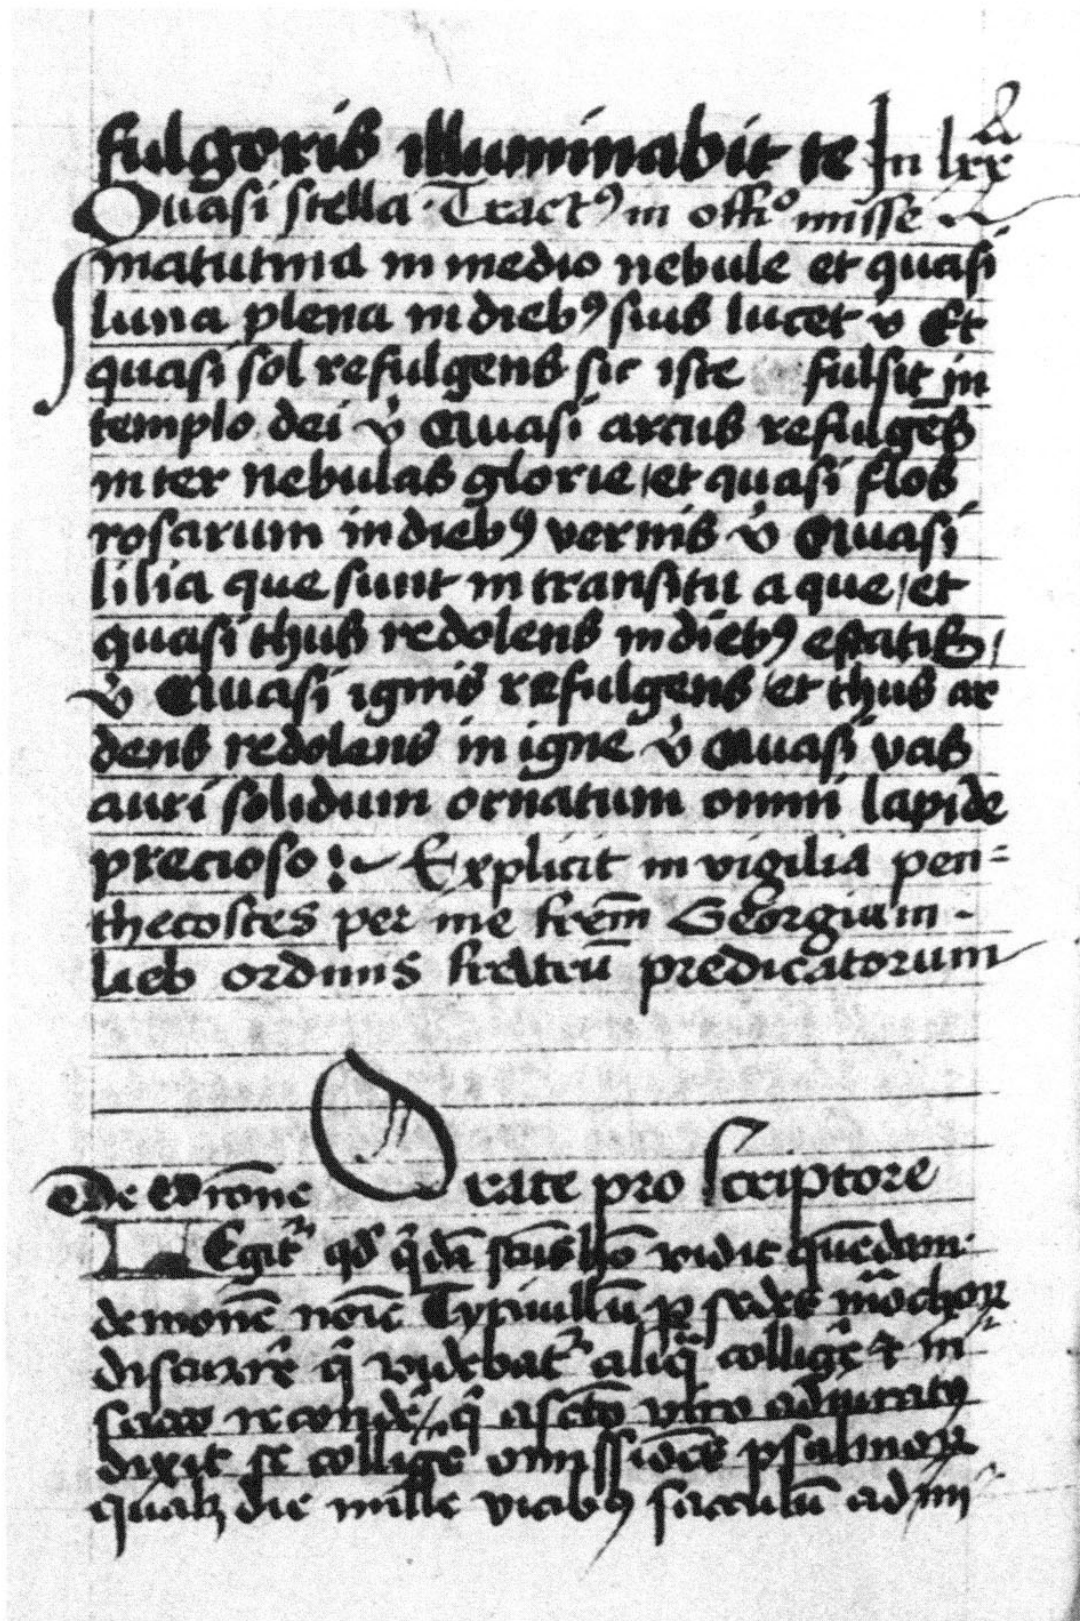 fulgoris illuminabit te In lxx
Quasi stella Tractꝰ in offıͦ misse
matutina in medio nebule et quasi
luna plena in diebꝰ suis lucet v Et
quasi sol refulgens sic iste fulsit in
templo dei v̓ Quasi arcus refulgēs
inter nebulas glorie / et quasi flos
rosarum in diebꝰ vernis v̓ Quasi
lilia que sunt in transitu aque / et
quasi thus redolens in diebꝰ estatis /
v̓ Quasi ignis refulgens / et thus ar
dens redolens in igne v̓ Quasi vas
auri solidum ornatum omni lapide
precioso : Explicit in vigilia pen=
thecostes per me frēm Georgium
lieb ordinis fratrū predicatorum
Orate pro scriptore
Legit᷑ qd̓ q̓dā scūs hō vidit quēdam
demonē noīe Tytiuillū ꝑ sedes mōchoꝝ
discurrē̓ q̓ videbat᷑ aliq̓ colligē̓ ⁊ in
sacco recondē̓ / q̓ a scō viro adiuratꝰ
dixit se colligē̓ omissiōēs psalmoꝝ
qualꝫ die mille vicibꝰ sacculū ad im